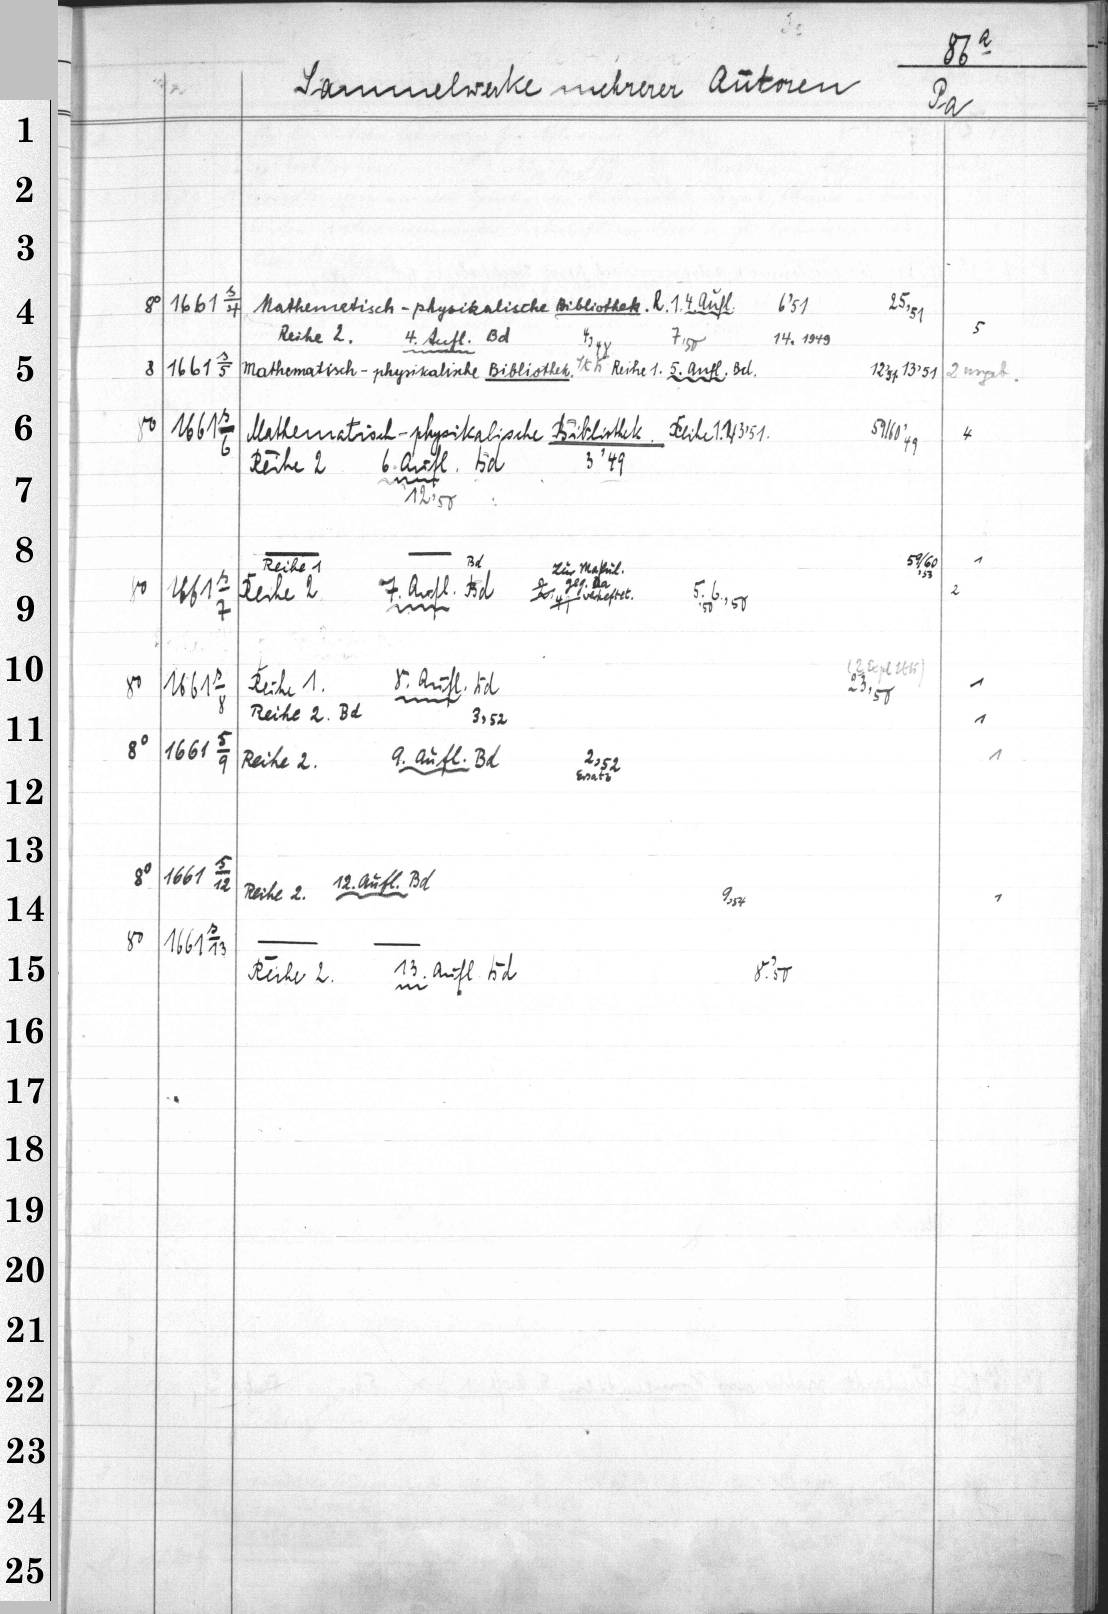 86 a
Sammelwerke mehrerer Autoren
Pa
1
2
3
4
8° 1661 5/4 Mathemetisch-physikalische Bibliothek. R. 1. 4. Aufl. 6'51 25,51
Reihe 2. 4. Aufl. Bd 7,50 14. 1949 5
5
8 1661 5/5 Mathematisch-physikalische Bibliothek. Reihe 1. 5. Aufl. Bd. 13'51 2
6
8° 1661 5/6 Mathematisch-physikalische Bibliothek. Reihe 1. 59/60'49 4
Reihe 2 6. Aufl. Bd 3'49
7
12,50
8
Reihe 1 Bd Zur Makul. 59/60,53 1
9
8° 1661 5/7 Reihe 2 7. Aufl. Bd ges. Da verheftet. 5.,50 6.,50 2
10
8° 1661 5/8 Reihe 1. 8. Aufl. Bd 23,50 1
Reihe 2. Bd 3,52 1
11
8° 1661 5/9 Reihe 2. 9. Aufl. Bd 2,52 1
Ersatz
12
13
8° 1661 5/12 Reihe 2. 12. Aufl. Bd 9,54 1
14
8° 1661 5/13
15
Reihe 2. 13. Aufl Bd 8.'50
16
17
18
19
20
21
22
23
24
25